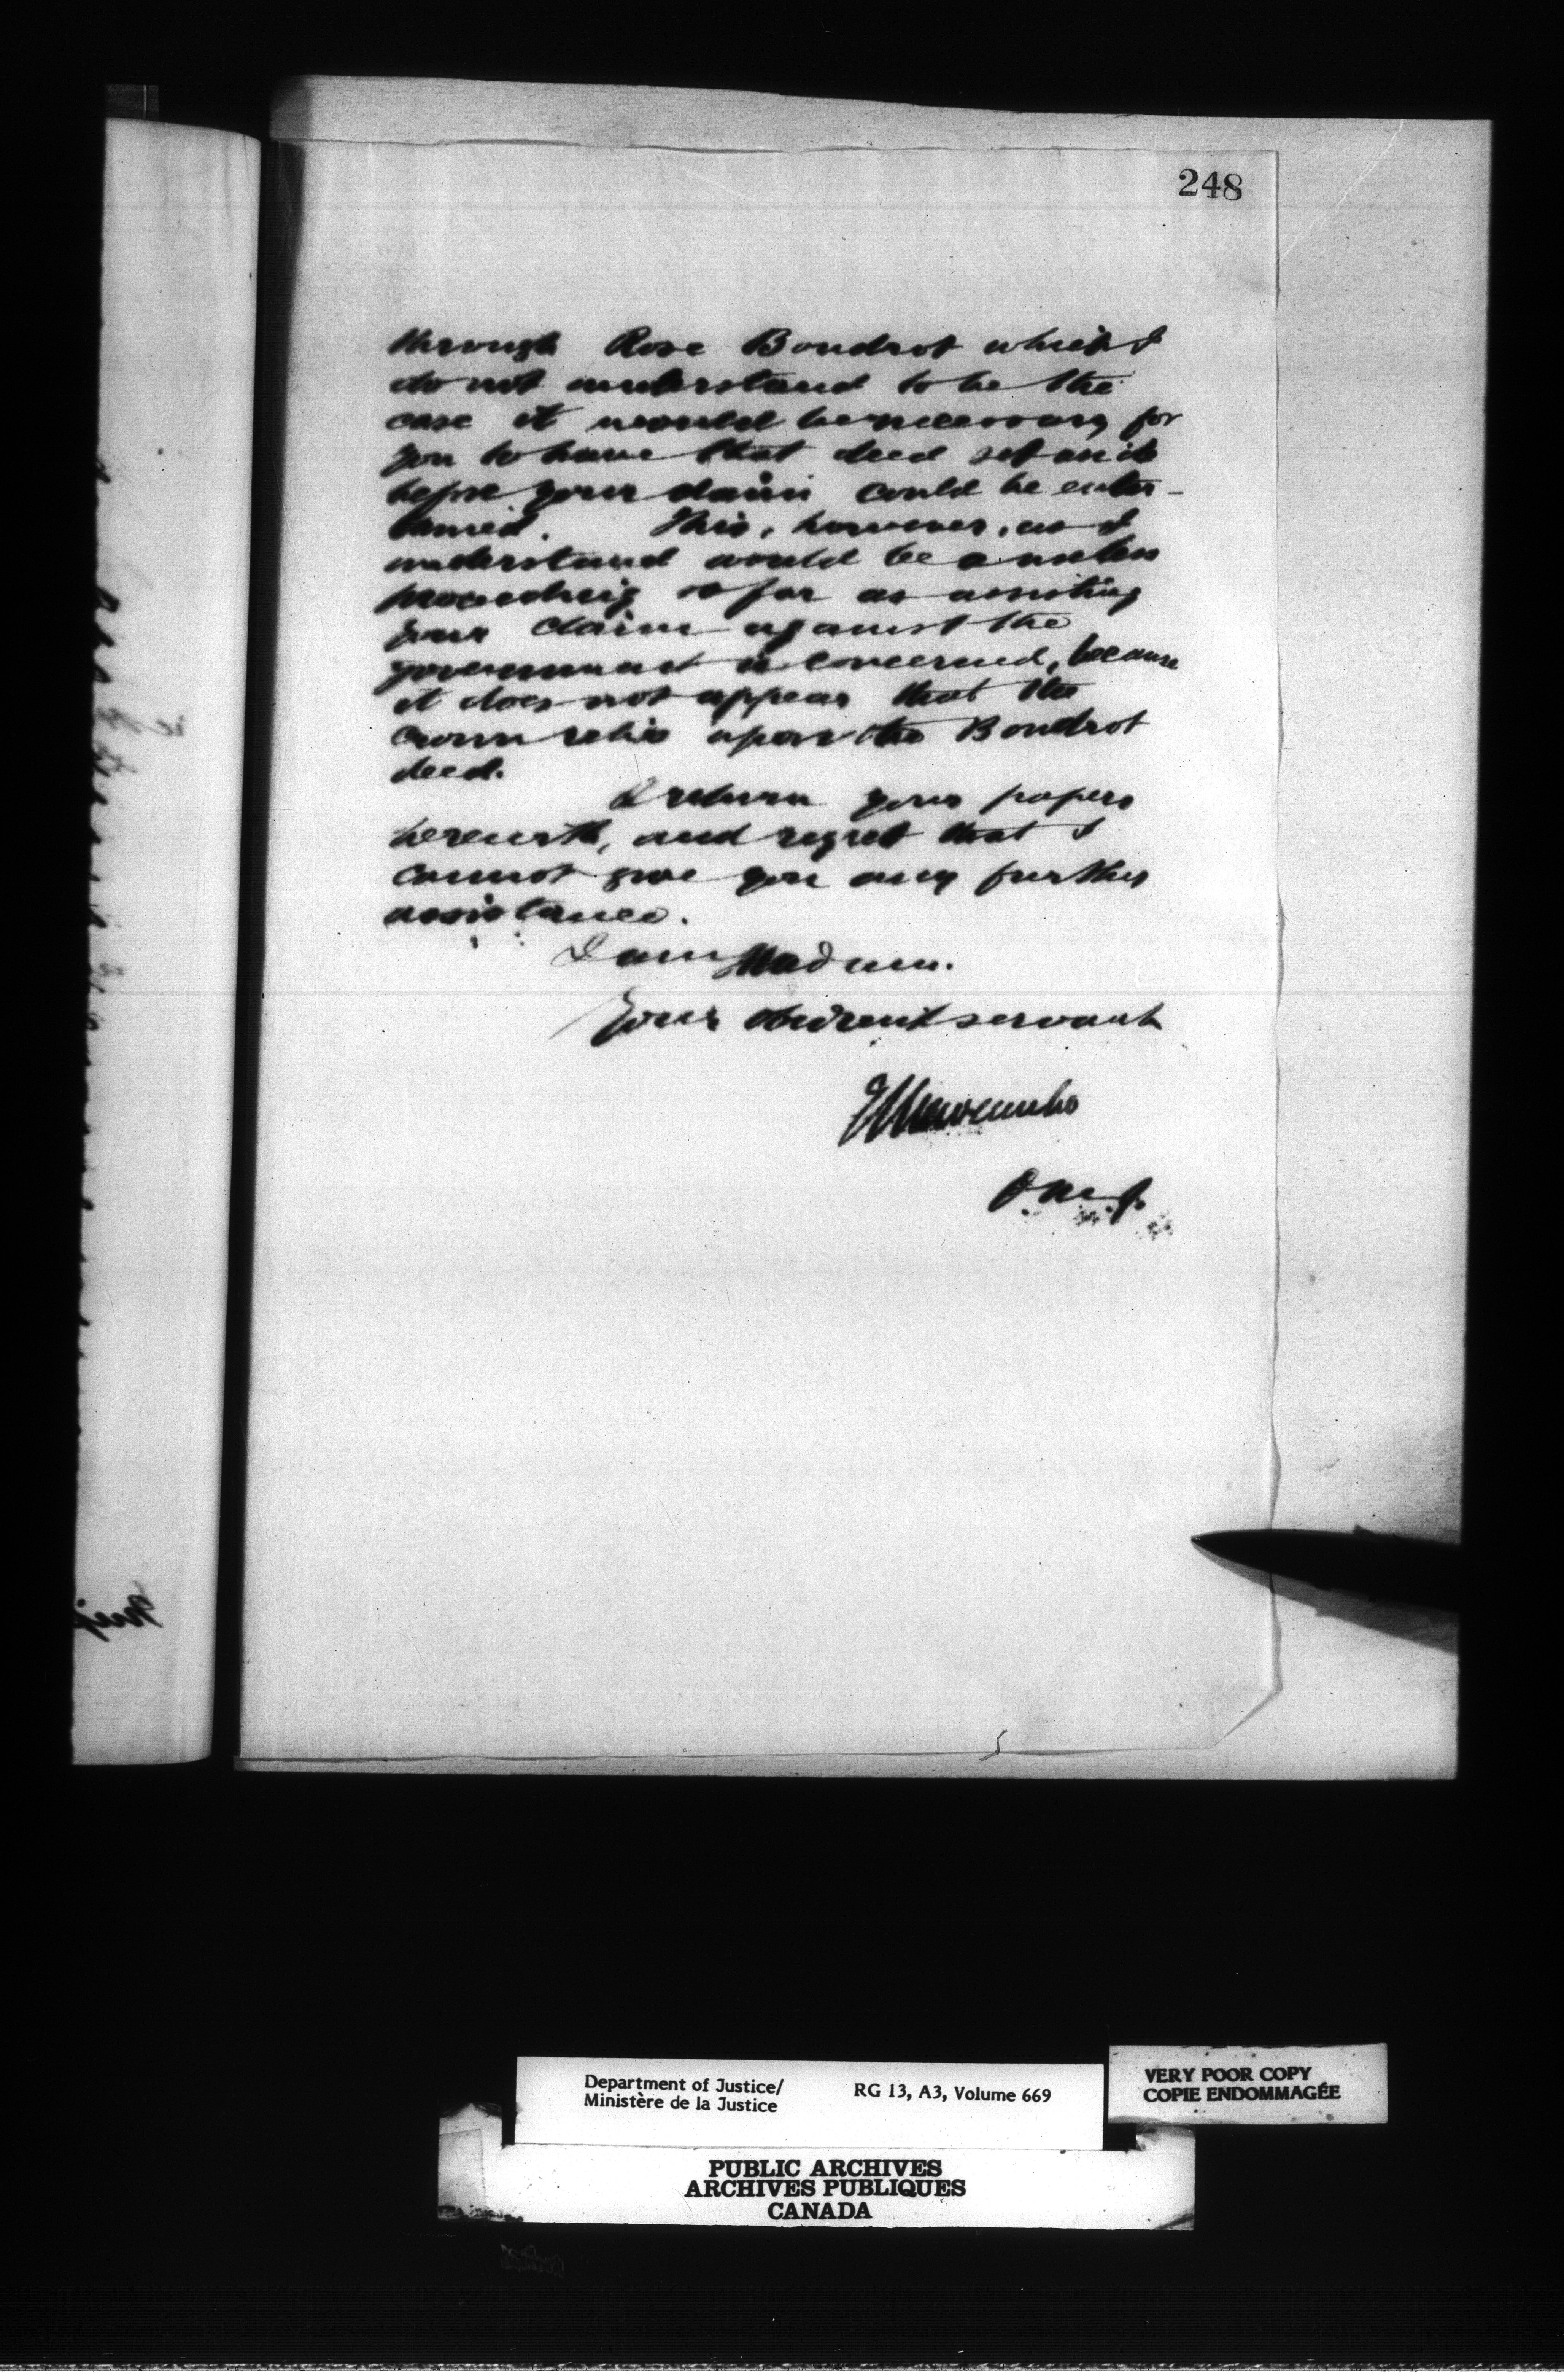 248
through Rose Boudrot which I
do not understand to be the
case it would be necessary for
you to have that deed set aside
before your claim could be enter-
tained. This, however, as I
understand would be a useless
proceeding so far as assisting
your claim against the
government is concerned, because
it does not appear that the
crown relies upon the Boudrot
deed.
I return your papers
herewith, and regret that I
cannot give you any further
assistance.
I am Madam.
Your obedient servant
D.M.J.
Department of Justice/
Ministère de la Justice
RG 13, A3, Volume 669
VERY POOR COPY
COPIE ENDOMMAGÉE
PUBLIC ARCHIVES
ARCHIVES PUBLIQUES
CANADA